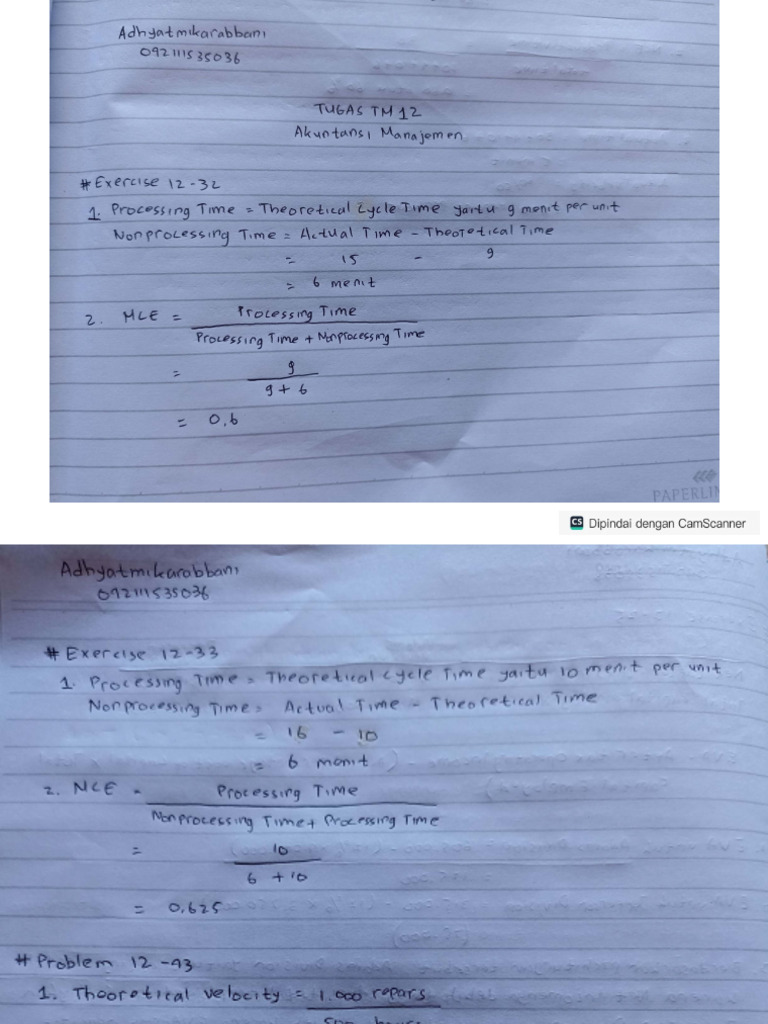 Adhyatmikarabbani
092111535036
TUGAS TM 12
Akuntansi Manajemen
# Exercise 12-32
1. Processing Time = Theoretical Cycle Time yaitu 9 menit per unit
Nonprocessing Time = Actual Time - Theoretical Time
= 15 - 9
= 6 menit
2. MCE = Processing Time
Processing Time + Nonprocessing Time
= 9
9 + 6
= 0,6
PAPERLI
CS Dipindai dengan CamScanner
Adhyatmikarabbani
092111535036
# Exercise 12-33
1. Processing Time = Theoretical Cycle Time yaitu 10 menit per unit
Nonprocessing Time = Actual Time - Theoretical Time
= 16 - 10
= 6 menit
2. MCE = Processing Time
Nonprocessing Time + Processing Time
= 10
6 + 10
= 0,625
# Problem 12-43
1. Theoretical velocity = 1.000 repars